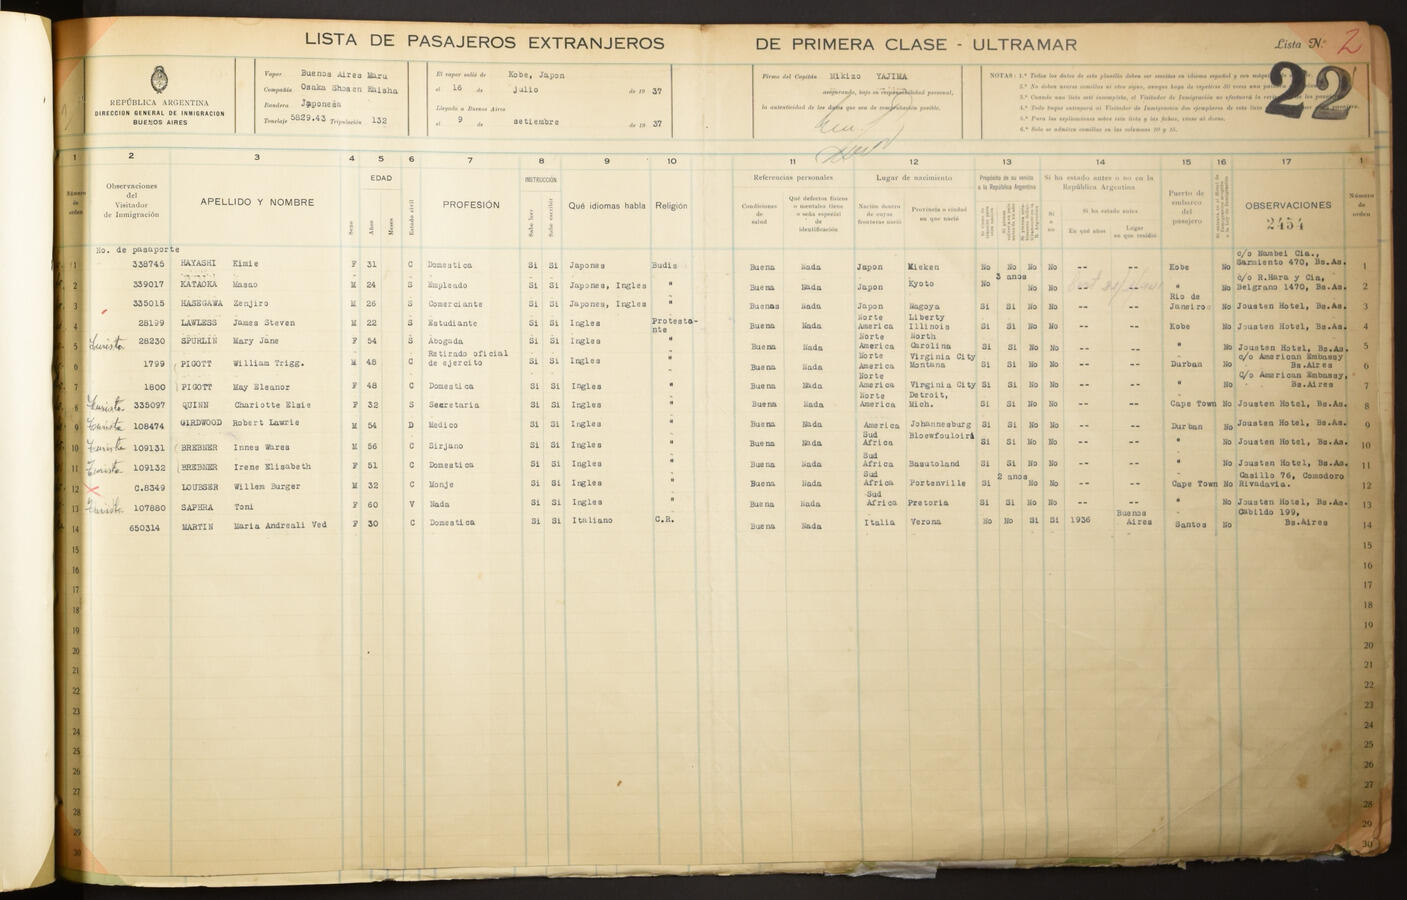 LISTA DE PASAJEROS EXTRANJEROS DE PRIMERA CLASE - ULTRAMAR Lista N.º 2
22
REPÚBLICA ARGENTINA
DIRECCION GENERAL DE INMIGRACION
BUENOS AIRES
Vapor Buenos Aires Maru
Compañía Osaka Shosen Kaisha
Bandera Japonesa
Tonelaje 5829.43 Tripulación 132
El vapor salió de Kobe, Japon
el 16 de julio de 19 37
Llegado a Buenos Aires
el 9 de setiembre de 19 37
Firma del Capitán Mikizo YAJIMA
asegurando, bajo su responsabilidad personal,
la autenticidad de los datos que sea de comprobación posible.
NOTAS: 1.ª Todos los datos de esta planilla deben ser escritos en idioma español y con
6.ª Sólo se admiten comillas en las columnas 10 y 15.
1 2 3 4 5 6 7 8 9 10 11 12 13 14 15 16 17 1
Número de orden
Observaciones del Visitador de Inmigración
APELLIDO Y NOMBRE
Sexo
EDAD
Años
Meses
Estado civil
PROFESIÓN
INSTRUCCIÓN
Sabe leer
Sabe escribir
Qué idiomas habla
Religión
Referencias personales
Condiciones de salud
Qué defectos físicos o mentales tiene o seña especial de identificación
Lugar de nacimiento
Nación dentro de cuyas fronteras nació
Provincia o ciudad en que nació
Propósito de su venida a la República Argentina
Si ha estado antes o no en la República Argentina
Si o no
Si ha estado antes
En qué años
Lugar en que residió
Puerto de embarco del pasajero
OBSERVACIONES
2454
Número de orden
No. de pasaporte
1 338745 HAYASHI Kimie F 31 C Domestica Si Si Japones Budis Buena Nada Japon Mieken No No No No -- -- Kobe No c/o Nambei Cia., Sarmiento 470, Bs.As. 1
2 339017 KATAOKA Masao M 24 S Empleado Si Si Japones, Ingles " Buena Nada Japon Kyoto No 3 anos No No -- -- " No c/o R.Hara y Cia, Belgrano 1470, Bs.As. 2
3 335015 HASEGAWA Zenjiro M 26 S Comerciante Si Si Japones, Ingles " Buenas Nada Japon Nagoya Si Si No No -- -- Rio de Janeiro No Jousten Hotel, Bs.As. 3
4 28199 LAWLESS James Steven M 22 S Estudiante Si Si Ingles Protestante Buena Nada Norte America Liberty Illinois Si Si No No -- -- Kobe No Jousten Hotel, Bs.As. 4
5 Turista 28230 SPURLIN Mary Jane F 54 S Abogada Si Si Ingles " Buena Nada Norte America North Carolina Si Si No No -- -- " No Jousten Hotel, Bs.As. 5
6 1799 PIGOTT William Trigg. M 48 C Retirado oficial de ejercito Si Si Ingles " Buena Nada Norte America Virginia City Montana Si Si No No -- -- Durban No c/o American Embassy Bs.Aires 6
7 1800 PIGOTT May Eleanor F 48 C Domestica Si Si Ingles " Buena Nada Norte America Virginia City Si Si No No -- -- " No C/o American Embassy, Bs.Aires 7
8 Turista 335097 QUINN Charlotte Elsie F 32 S Secretaria Si Si Ingles " Buena Nada Norte America Detroit, Mich. Si Si No No -- -- Cape Town No Jousten Hotel, Bs.As. 8
9 Turista 108474 GIRDWOOD Robert Lawrie M 54 D Medico Si Si Ingles " Buena Nada America Johannesburg Si Si No No -- -- Durban No Jousten Hotel, Bs.As. 9
10 Turista 109131 BREBNER Innes Wares M 56 C Sirjano Si Si Ingles " Buena Nada Sud Africa Bloewfouloiri Si Si No No -- -- " No Jousten Hotel, Bs.As. 10
11 Turista 109132 BREBNER Irene Elisabeth F 51 C Domestica Si Si Ingles " Buena Nada Sud Africa Basutoland Si Si No No -- -- " No Jousten Hotel, Bs.As. 11
12 C.8349 LOUBSER Willem Burger M 32 C Monje Si Si Ingles " Buena Nada Sud Africa Portenville Si 2 anos No No -- -- Cape Town No Casillo 76, Comodoro Rivadavia. 12
13 Turista 107880 SAPERA Toni F 60 V Nada Si Si Ingles " Buena Nada Sud Africa Pretoria Si Si No No -- -- " No Jousten Hotel, Bs.As. 13
14 650314 MARTIN Maria Andreali Ved F 30 C Domestica Si Si Italiano C.R. Buena Nada Italia Verona No No Si Si 1936 Buenos Aires Santos No Cabildo 199, Bs.Aires 14
15 15
16 16
17 17
18 18
19 19
20 20
21 21
22 22
23 23
24 24
25 25
26 26
27 27
28 28
29 29
30 30